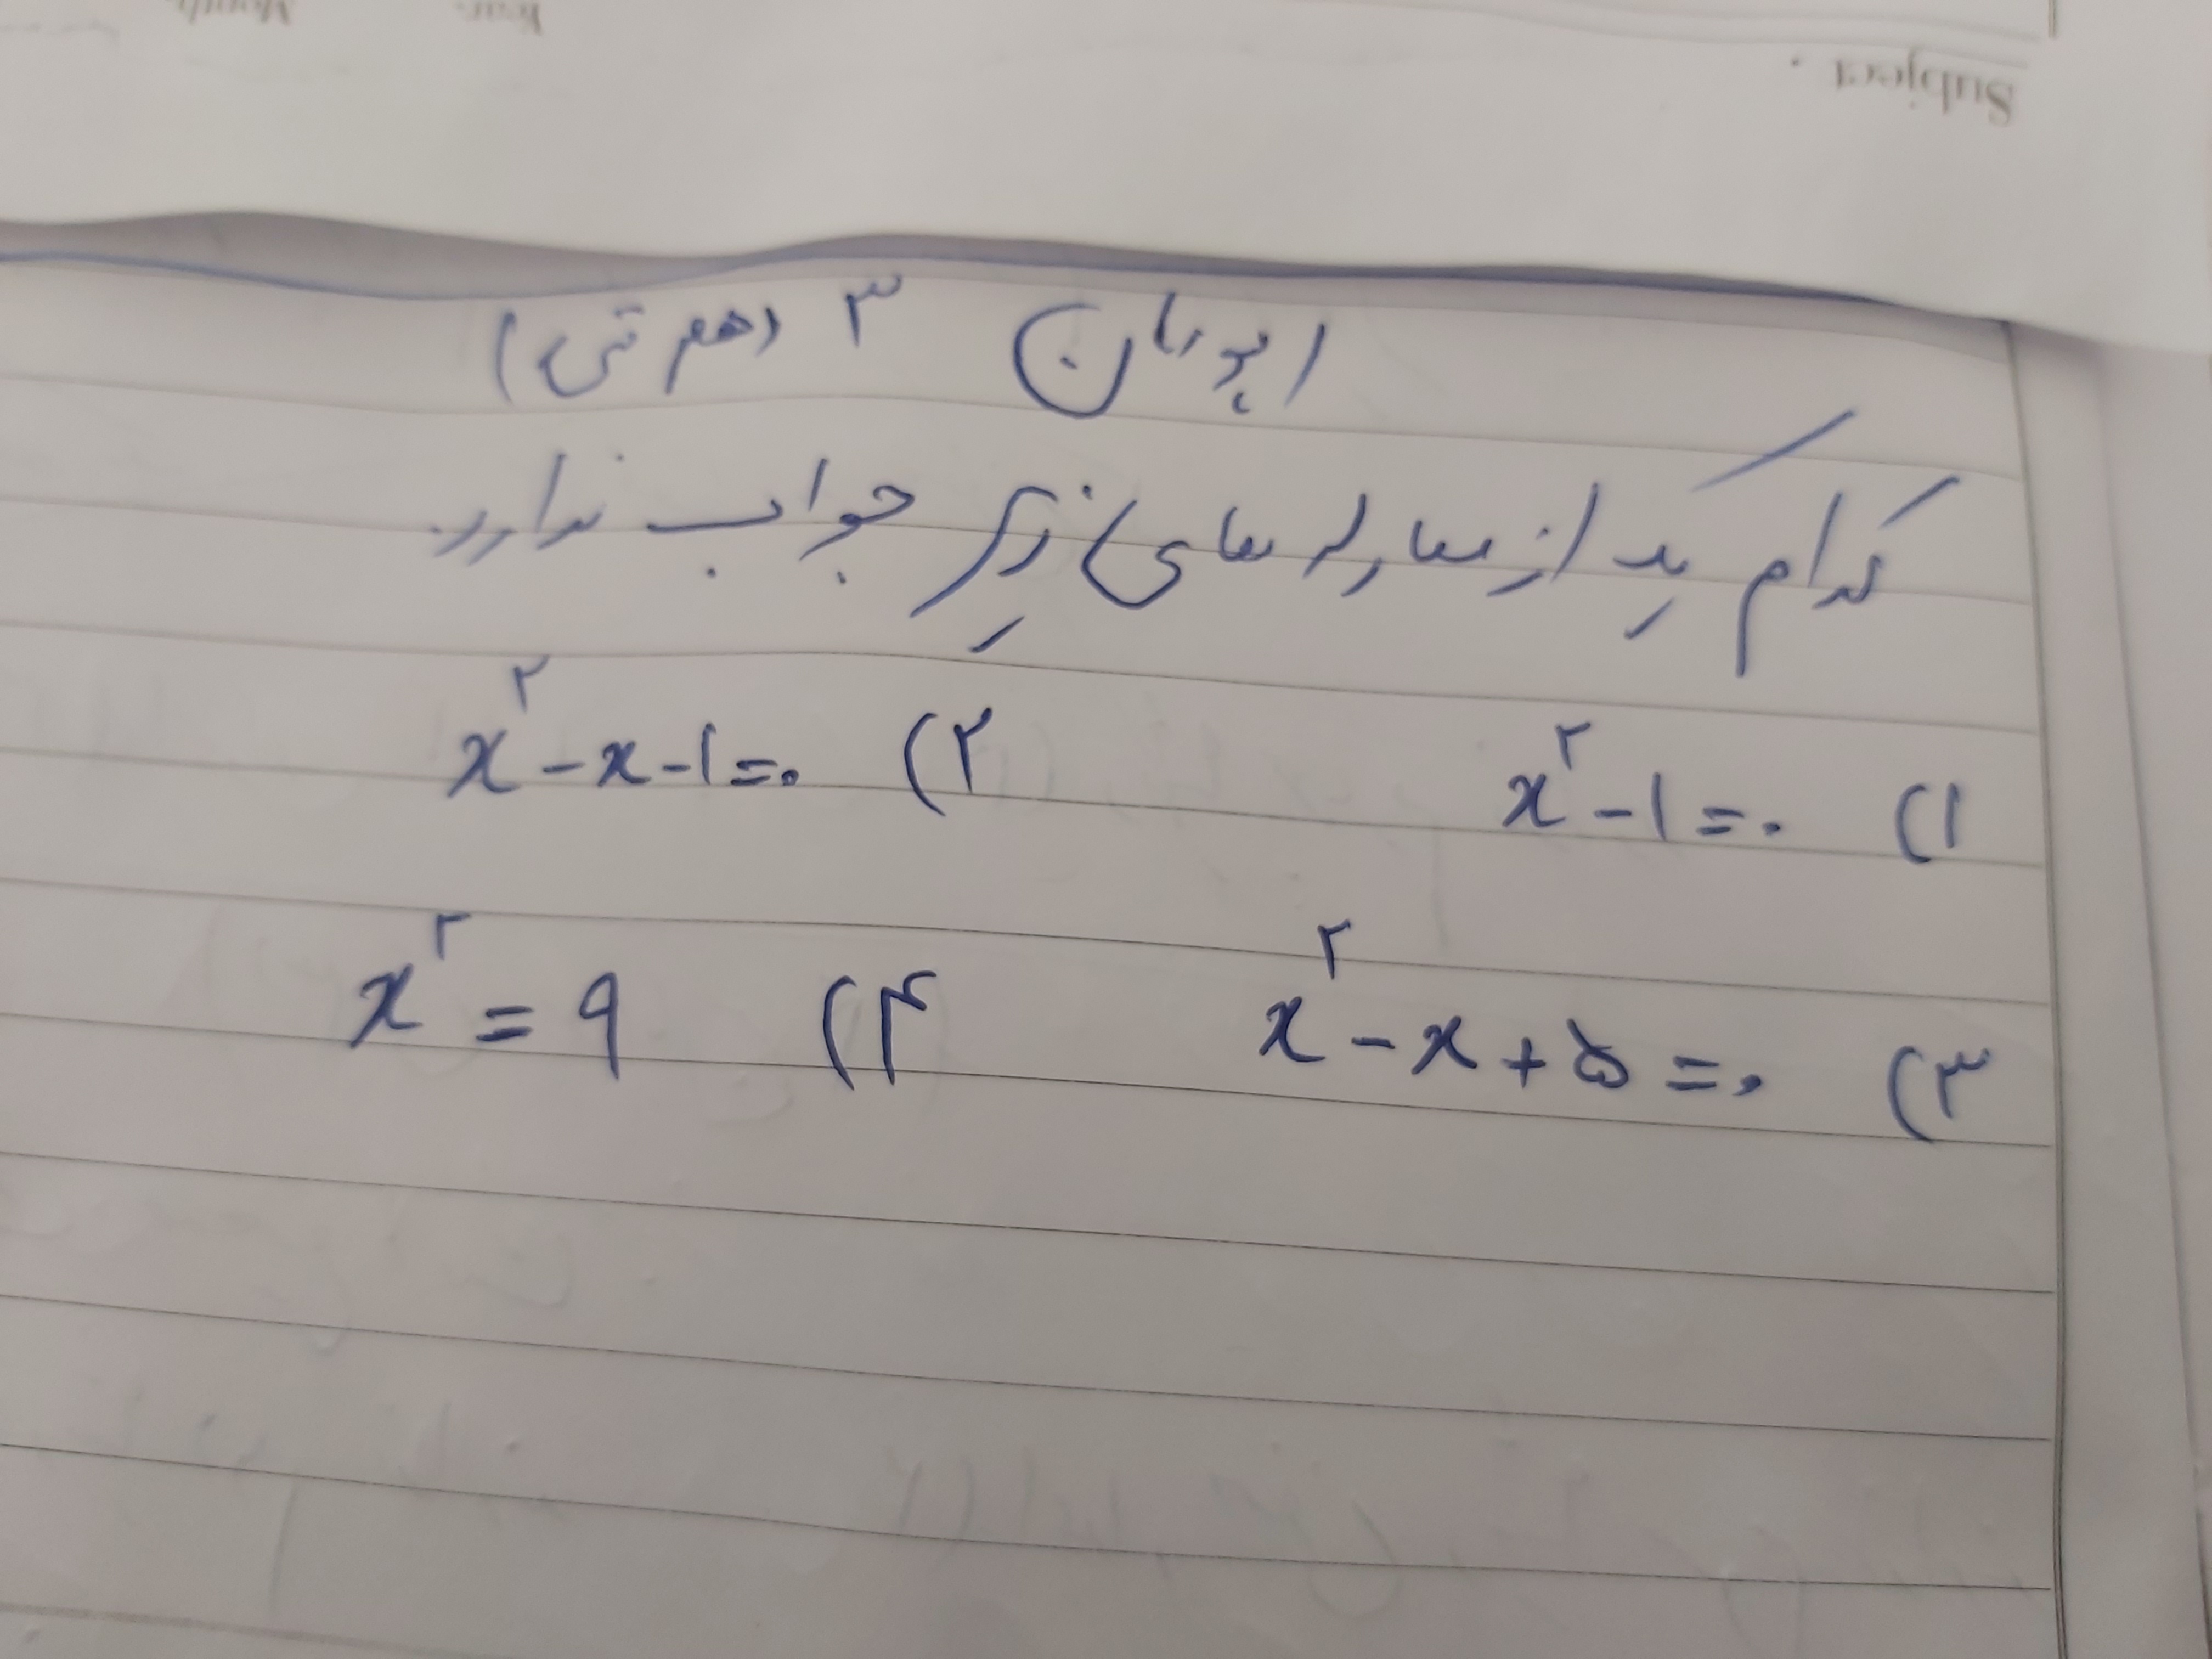 Subject .
Year.
Month.
اپرمان ۳ (دهم فنی)
کدام یک از معادله های زیر جواب ندارد.
۱) x² - ۱ = ۰ ۲) x² - x - ۱ = ۰
۳) x² - x + ۵ = ۰ ۴) x² = ۹